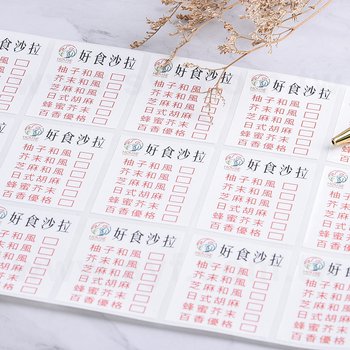 好食沙拉
柚子和風
芥末和風
芝麻和風
日式胡麻
蜂蜜芥末
百香優格
好食沙拉
柚子和風
芥末和風
芝麻和風
日式胡麻
蜂蜜芥末
百香優格
好食沙拉
柚子和風
芥末和風
芝麻和風
日式胡麻
蜂蜜芥末
百香優格
好食沙拉
柚子和風
芥末和風
芝麻和風
日式胡麻
蜂蜜芥末
百香優格
好食沙拉
柚子和風
芥末和風
芝麻和風
日式胡麻
蜂蜜芥末
百香優格
好食沙拉
柚子和風
芥末和風
芝麻和風
日式胡麻
蜂蜜芥末
百香優格
好食沙拉
柚子和風
芥末和風
芝麻和風
日式胡麻
蜂蜜芥末
百香優格
好食沙拉
柚子和風
芥末和風
芝麻和風
日式胡麻
蜂蜜芥末
百香優格